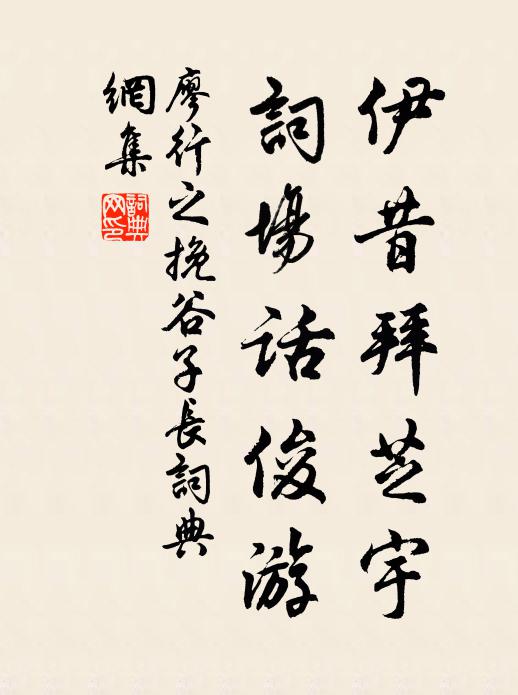 伊昔拜芝宇
詞場話俊游
廖行之挽谷子長詞典
網集
詞典
网印